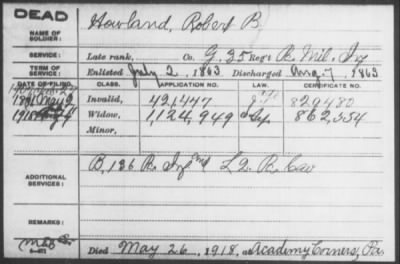 DEAD
NAME OF SOLDIER: Howland, Robert B.
SERVICE: Late rank, Co. G, 35 Reg't Pa. Mil. Inf
TERM OF SERVICE: Enlisted July 2, 1863 Discharged Aug. 7, 1863
DATE OF FILING. CLASS. APPLICATION NO. LAW. CERTIFICATE NO.
Invalid, 421,447 829480
Widow, 1,124,949 862,354
Minor,
ADDITIONAL SERVICES: B, 136 Pa. Inf and L 2. Pa. Cav
REMARKS:
Died May 26, 1918, at Academy Corners, Pa